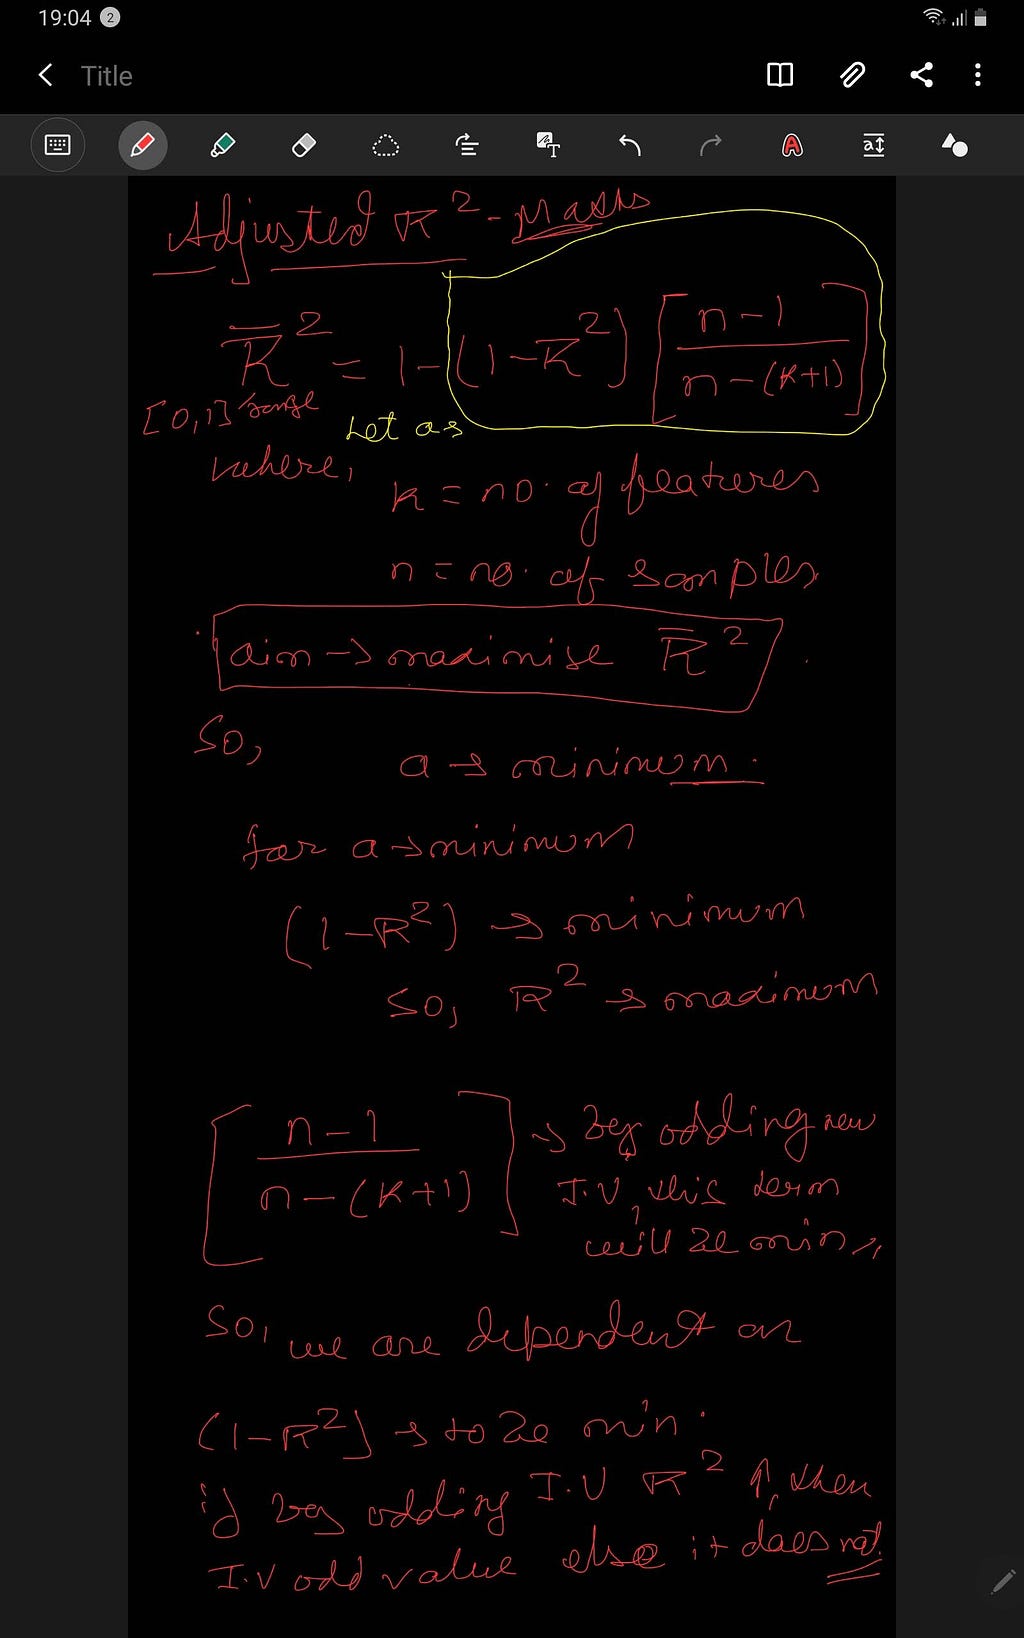 19:04 2
Title
Adjusted R² - Maths
R̅² = 1 - (1-R²) [n-1 / n-(K+1)]
[0,1] range
Let as
where,
K = no. of features
n = no. of samples
aim → maximise R̅²
So,
a → minimum.
for a → minimum
(1-R²) → minimum
So, R² → maximum
[n-1 / n-(K+1)] → by adding new
I.V, this term
will be min,,
So, we are dependent on
(1-R²) → to be min.
if by adding I.V R² ↑, then
I.V add value else it does not.